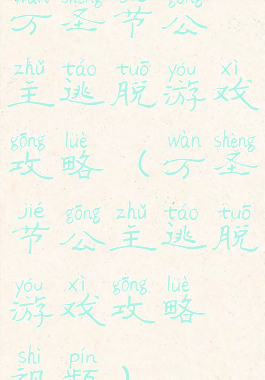 wàn shèng jié gōng
万圣节公
zhǔ táo tuō yóu xì
主逃脱游戏
gōng lüè wàn shèng
攻略（万圣
jié gōng zhǔ táo tuō
节公主逃脱
yóu xì gōng lüè
游戏攻略
shì pín
视频）